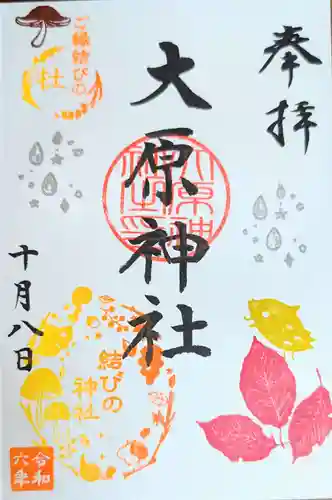 奉拝
大原神社
十月八日
ご縁結びの
社
結びの
神社
令和
六年